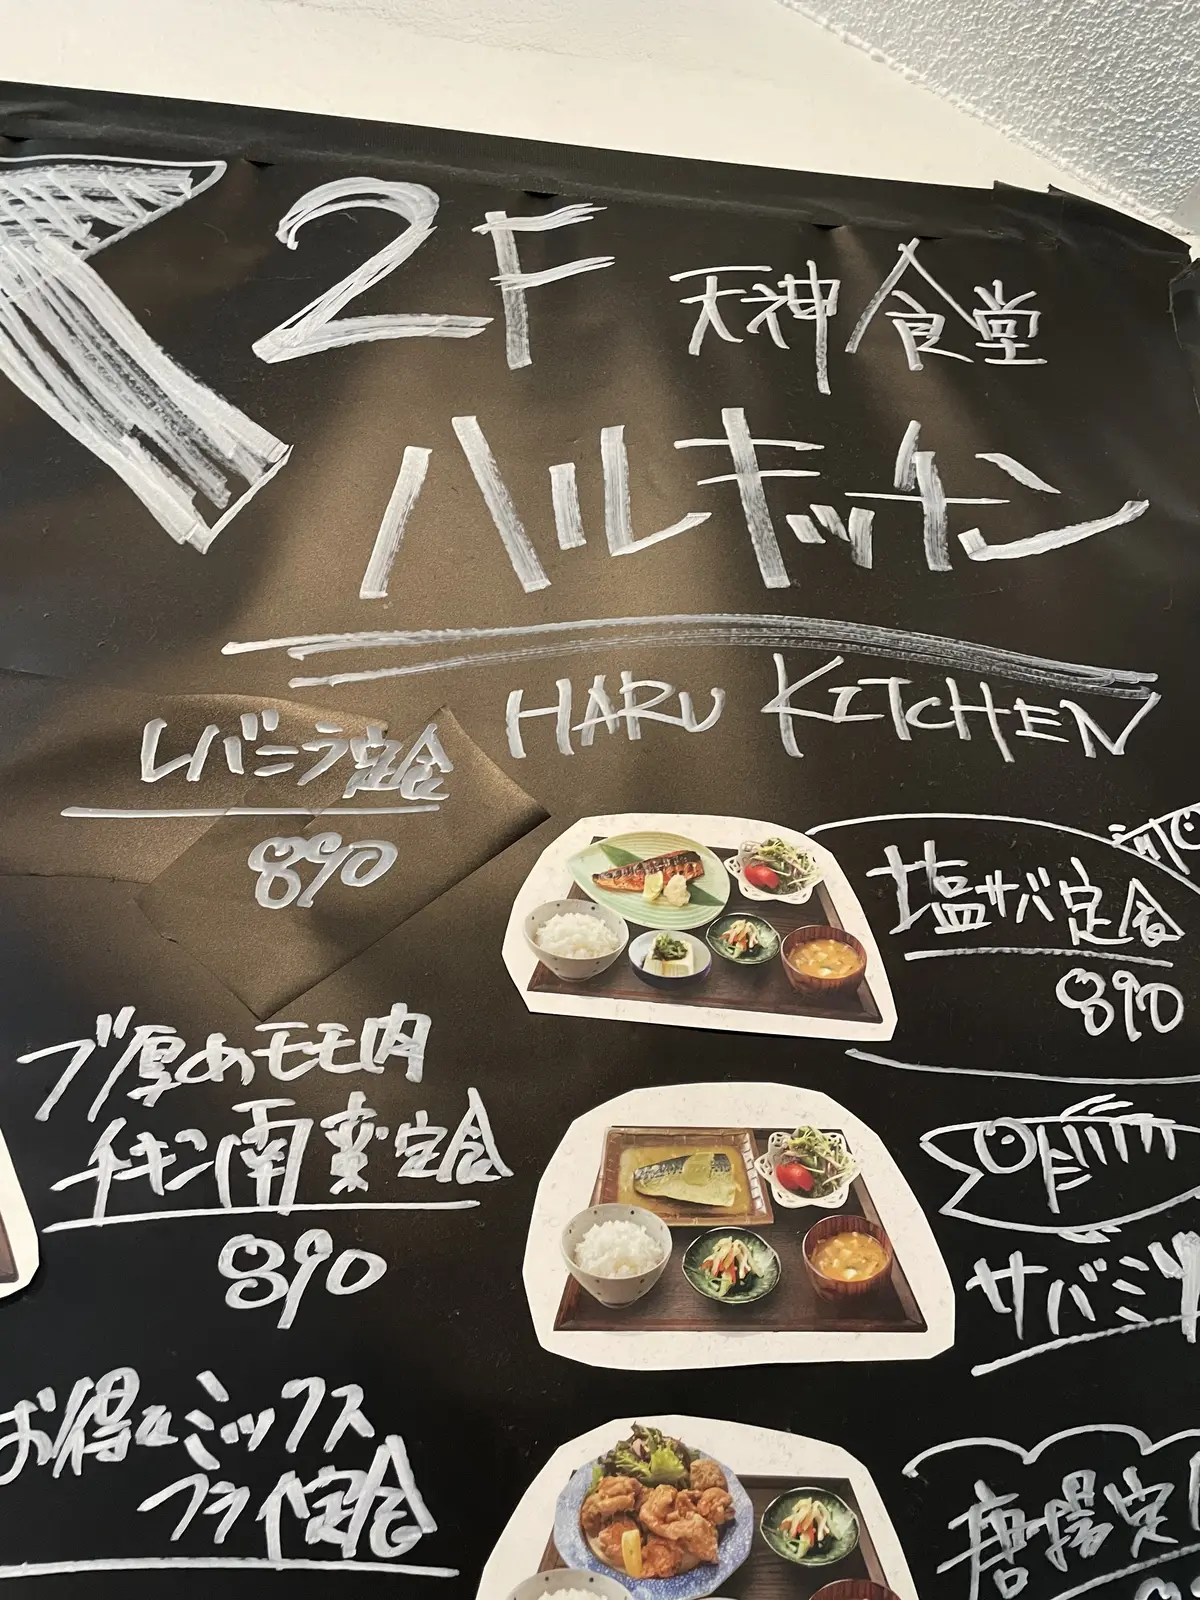 2F 天神食堂
ハルキッチン
HARU KITCHEN
レバニラ定食
890
塩サバ定食
890
ブ厚めモモ肉
チキン南蛮定食
890
サバミ
お得なミックス
フライ定食
唐揚定